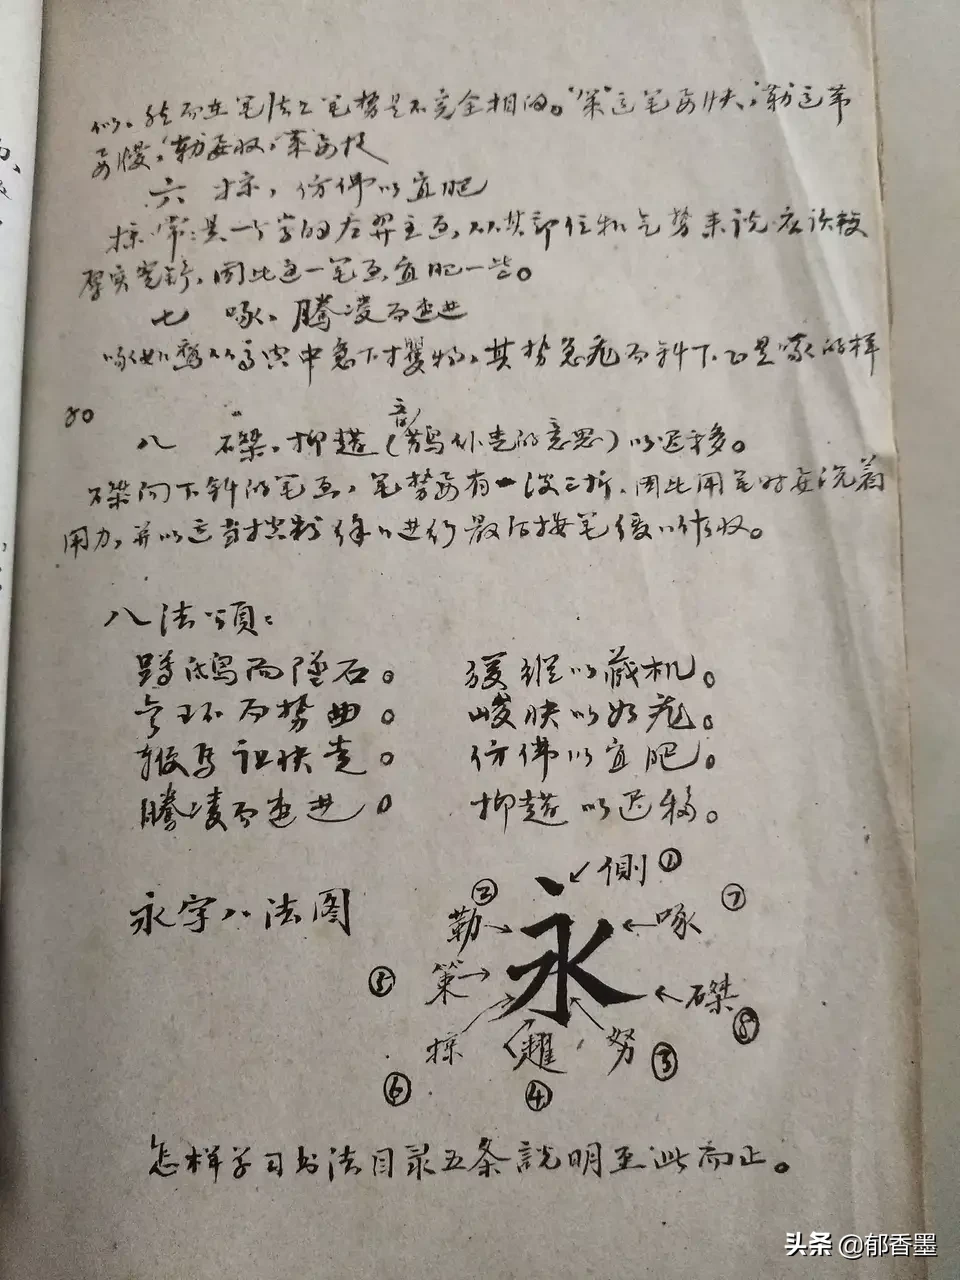 似。然而在笔法上笔势是不完全相同。“策”这笔要快，“勒”这笔
要慢，“勒”要收，“策”要提
六 掠，仿佛以宜肥
掠常是一个字的左羿主画，从其部位和气势来说应该较
厚实宽舒，因此这一笔画宜肥一些。
七 啄，腾凌而速进
啄如鹰从高空中急下攫物，其势急疾而斜下正是啄的样
80
八 磔，抑趞（音鹊外走的意思）以迟移。
磔向下斜的笔画，笔势要有一波三折，因此用笔时要沉着
用力，并以适当控制徐以进行最后按笔缓以作收。
八法頌：
蹲鸱而墜石。 缓縱以藏机。
而势曲。 峻快以如疾。
快走。 仿佛以宜肥。
腾凌而速进。 抑趞以迟移。
永字八法图
側①
②
勒
永
啄
⑦
⑤
策
磔
⑧
掠
⑥
趯
④
努
③
怎样学习书法目录五条説明至此而止。
头条 @郁香墨